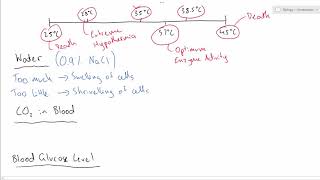 28°C 35°C 38.5°C Death
25°C Extreme 37°C 45°C
Death Hypothermia Optimum
Enzyme Activity
Water (0.9% NaCl)
Too much → Swelling of cells
Too little → Shrivelling of cells
CO₂ in Blood
Blood Glucose Level